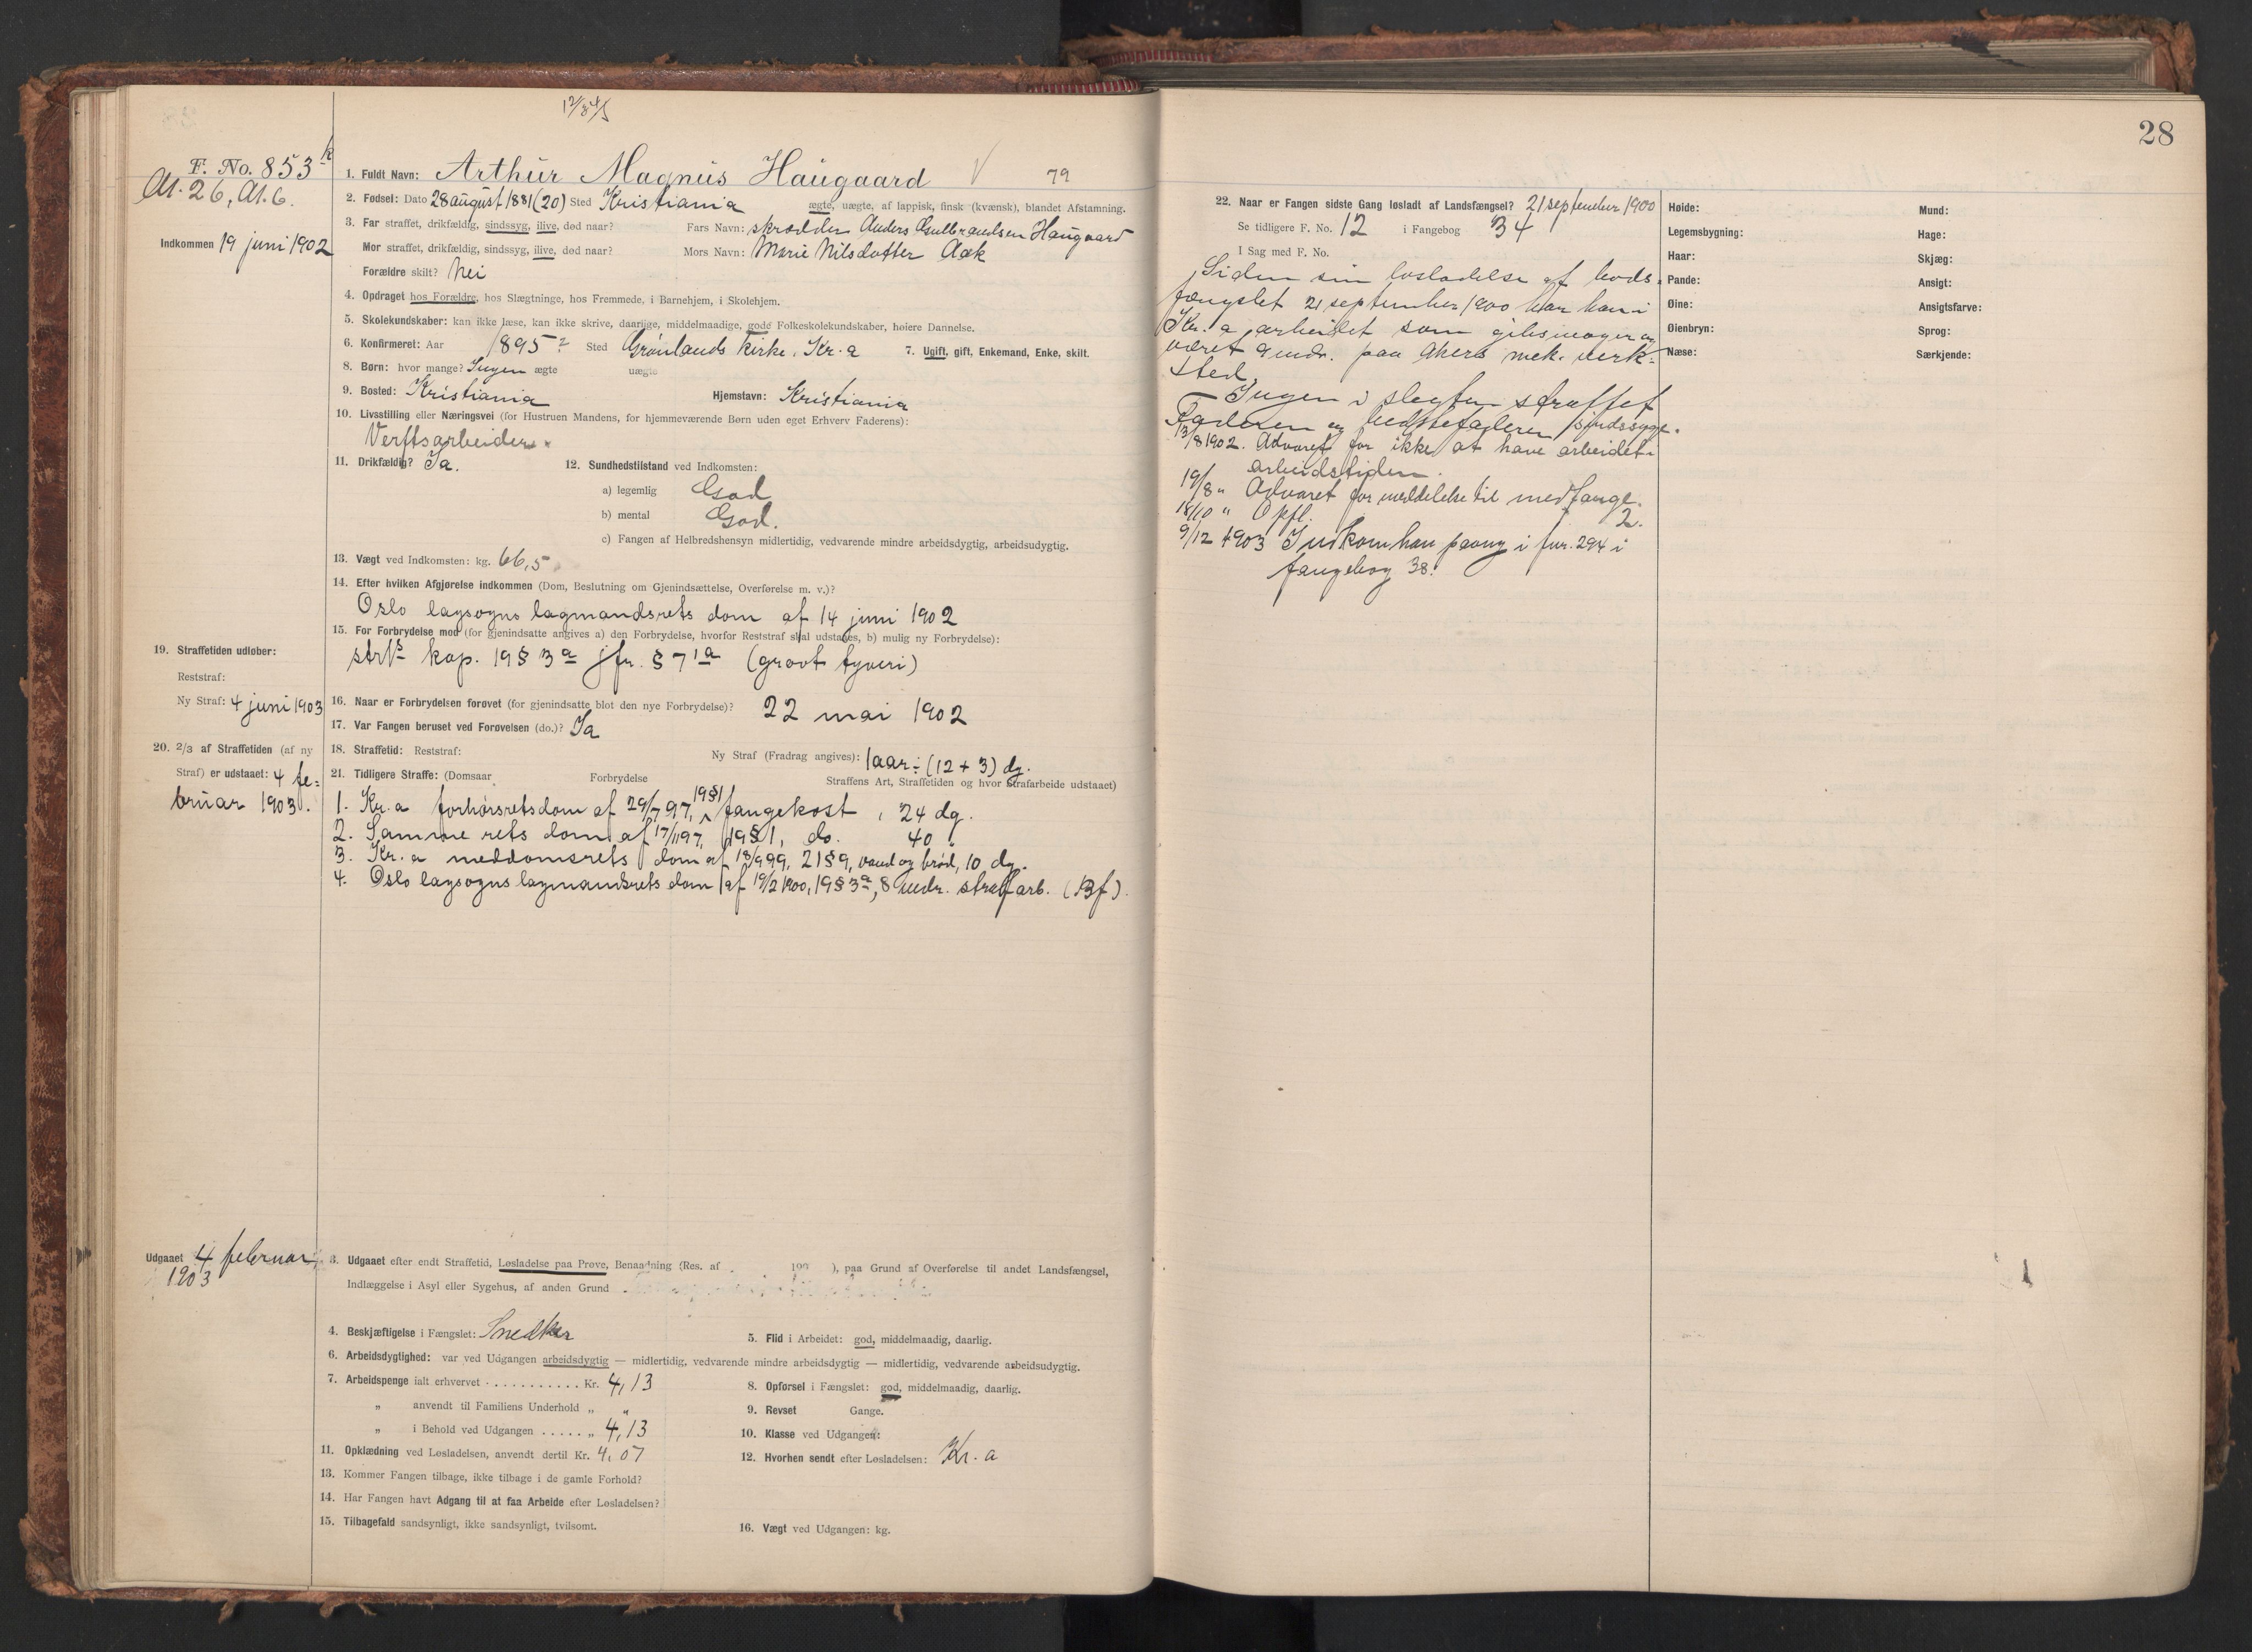 F. No. 853 k
At. 26, At. 6.
Indkommen 19 juni 1902
1. Fuldt Navn: Arthur Magnus Haugaard 79
2. Fødsel: Dato 28 august 1881 (20) Sted Kristiania ægte, uægte, af lappisk, finsk (kvænsk), blandet Afstamning.
3. Far straffet, drikfældig, sindssyg, ilive, død naar? Fars Navn: skrædder Anders Gulbrandsen Haugaard
Mor straffet, drikfældig, sindssyg, ilive, død naar? Mors Navn: Marie Nilsdatter Aak
Forældre skilt? Nei
4. Opdraget hos Forældre, hos Slægtninge, hos Fremmede, i Barnehjem, i Skolehjem.
5. Skolekundskaber: kan ikke læse, kan ikke skrive, daarlige, middelmaadige, gode Folkeskolekundskaber, høiere Dannelse.
6. Konfirmeret: Aar 1895? Sted Grønlands kirke, Kr.a 7. Ugift, gift, Enkemand, Enke, skilt.
8. Børn: hvor mange? Ingen ægte uægte
9. Bosted: Kristiania Hjemstavn: Kristiania
10. Livsstilling eller Næringsvei (for Hustruen Mandens, for hjemmeværende Børn uden eget Erhverv Faderens):
Verftsarbeider.
11. Drikfældig? Ja. 12. Sundhedstilstand ved Indkomsten:
a) legemlig God
b) mental God.
c) Fangen af Helbredshensyn midlertidig, vedvarende mindre arbeidsdygtig, arbeidsudygtig.
13. Vægt ved Indkomsten: kg. 66,5
14. Efter hvilken Afgjørelse indkommen (Dom, Beslutning om Gjenindsættelse, Overførelse m. v.)?
Oslo lagsogns lagmandsrets dom af 14 juni 1902
15. For Forbrydelse mod (for gjenindsatte angives a) den Forbrydelse, hvorfor Reststraf skal udstaaes, b) mulig ny Forbrydelse):
strls kap. 19 § 3 a jfr. § 7 1 a (grovt tyveri)
19. Straffetiden udløber:
Reststraf:
Ny Straf: 4 juni 1903
16. Naar er Forbrydelsen forøvet (for gjenindsatte blot den nye Forbrydelse)? 22 mai 1902
17. Var Fangen beruset ved Forøvelsen (do.)? Ja
20. 2/3 af Straffetiden (af ny
Straf) er udstaaet: 4 fe=
bruar 1903.
18. Straffetid: Reststraf: Ny Straf (Fradrag angives): 1 aar ÷ (12 + 3) dg.
21. Tidligere Straffe: (Domsaar Forbrydelse Straffens Art, Straffetiden og hvor Strafarbeide udstaaet)
1. Kr.a forhørsretsdom af 29/7 97, 19 § 1 fangekost, 24 dg.
2. Samme rets dom af 17/11 97, 19 § 1, do. 40 "
3. Kr.a meddomsrets dom af 18/9 99, 21 § 9, vand og brød, 10 dg.
4. Oslo lagsogns lagmandsrets dom af 19/2 1900, 19 § 3 a, 8 mdr. strafarb. (Bf).
Udgaaet 4 februar
1903
3. Udgaaet efter endt Straffetid, Løsladelse paa Prøve, Benaadning (Res. af 190 ), paa Grund af Overførelse til andet Landsfængsel,
Indlæggelse i Asyl eller Sygehus, af anden Grund
4. Beskjæftigelse i Fængslet: Snedker 5. Flid i Arbeidet: god, middelmaadig, daarlig.
6. Arbeidsdygtighed: var ved Udgangen arbeidsdygtig — midlertidig, vedvarende mindre arbeidsdygtig — midlertidig, vedvarende arbeidsudygtig.
7. Arbeidspenge ialt erhvervet . . . . . . . . . . . Kr. 4,13 8. Opførsel i Fængslet: god, middelmaadig, daarlig.
" anvendt til Familiens Underhold " " 9. Revset Gange.
" i Behold ved Udgangen . . . . . " 4,13 10. Klasse ved Udgangen:
11. Opklædning ved Løsladelsen, anvendt dertil Kr. 4,07 12. Hvorhen sendt efter Løsladelsen: Kr.a
13. Kommer Fangen tilbage, ikke tilbage i de gamle Forhold?
14. Har Fangen havt Adgang til at faa Arbeide efter Løsladelsen?
15. Tilbagefald sandsynligt, ikke sandsynligt, tvilsomt. 16. Vægt ved Udgangen: kg.
28
22. Naar er Fangen sidste Gang løsladt af Landsfængsel? 21 september 1900
Se tidligere F. No. 12 i Fangebog 34
I Sag med F. No.
Siden sin løsladelse af bods-
fængslet 21 september 1900 har han i
Kr.a arbeidet som gibsmager og
været 9 mdr. paa Akers mek. verk-
sted.
Ingen i slegten straffet
Faderen og bedstefaderen sindssyge.
13/8 1902. Advaret for ikke at have arbeidet i
arbeidstiden.
19/8 " Advaret for meddelelse til medfange.
18/10 " Opfl. 2.
9/12 1903 Indkom han paany i fnr. 294 i
fangebog 38.
Høide: Mund:
Legemsbygning: Hage:
Haar: Skjæg:
Pande: Ansigt:
Øine: Ansigtsfarve:
Øienbryn: Sprog:
Næse: Særkjende: